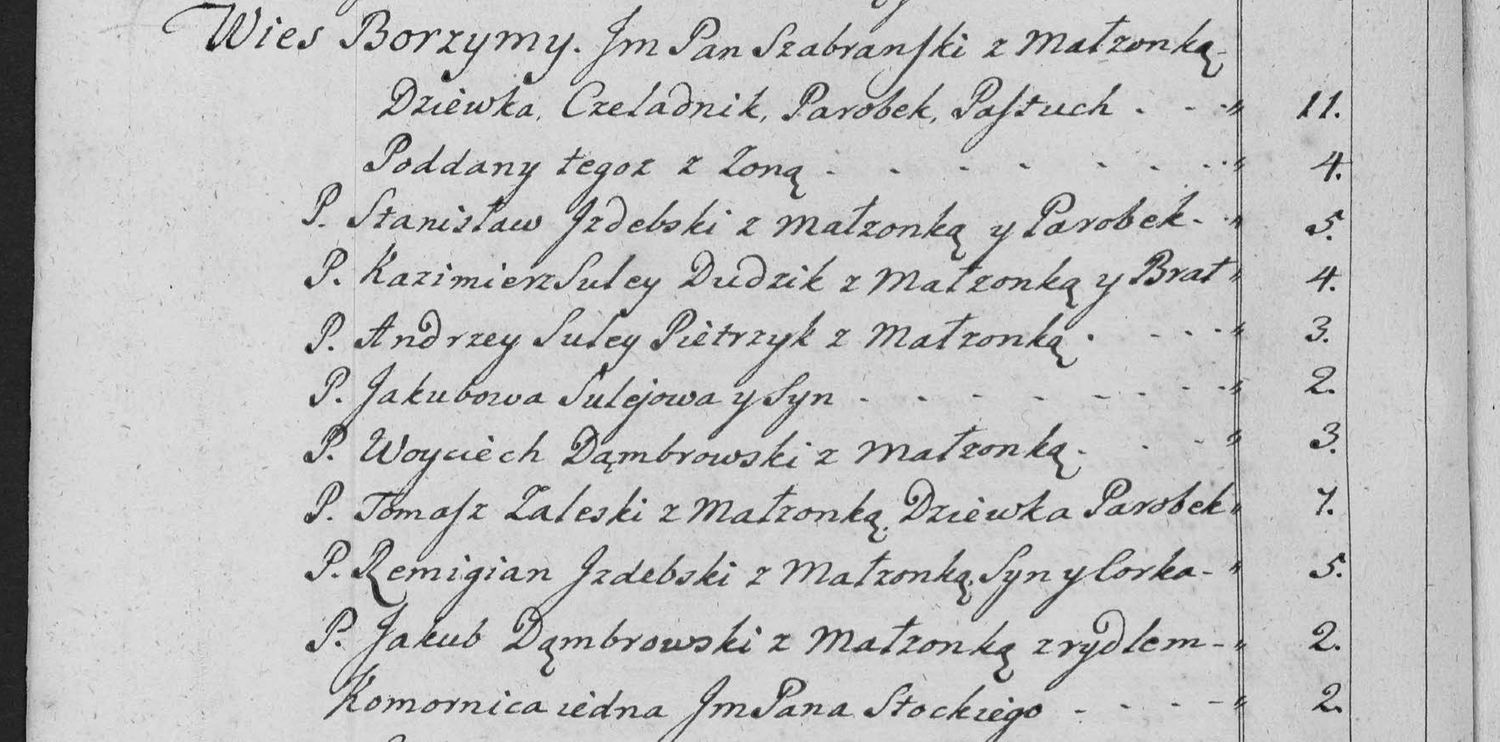 Wies Borzymy. Jm Pan Szabranski z Małzonką
Dziewka, Czeladnik, Parobek, Pastuch . - - " 11.
Poddany tegoz z Zoną . . - - - - - " 4.
P. Stanisław Jzdebski z Małzonką y Parobek - " 5.
P. Kazimierz Suley Dudzik z Małzonką y Brat " 4.
P. Andrzey Suley Pietrzyk z Małzonką . - - - " 3.
P. Jakubowa Sulejowa y Syn - - - - - - - " 2.
P. Woyciech Dąmbrowski z Małzonką. - - " 3.
P. Tomasz Zaleski z Małzonką, Dziewka Parobek " 7.
P. Remigian Jzdebski z Małzonką, Syn y Corka - " 5.
P. Jakub Dąmbrowski z Małzonką z rydlem - " 2.
Komornica iedna Jm Pana Stockiego - - - - " 2.